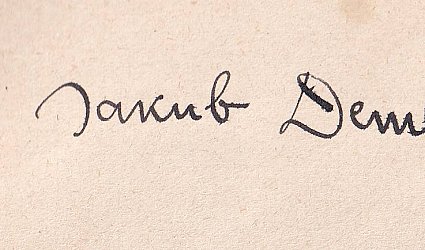 Jakub Dem